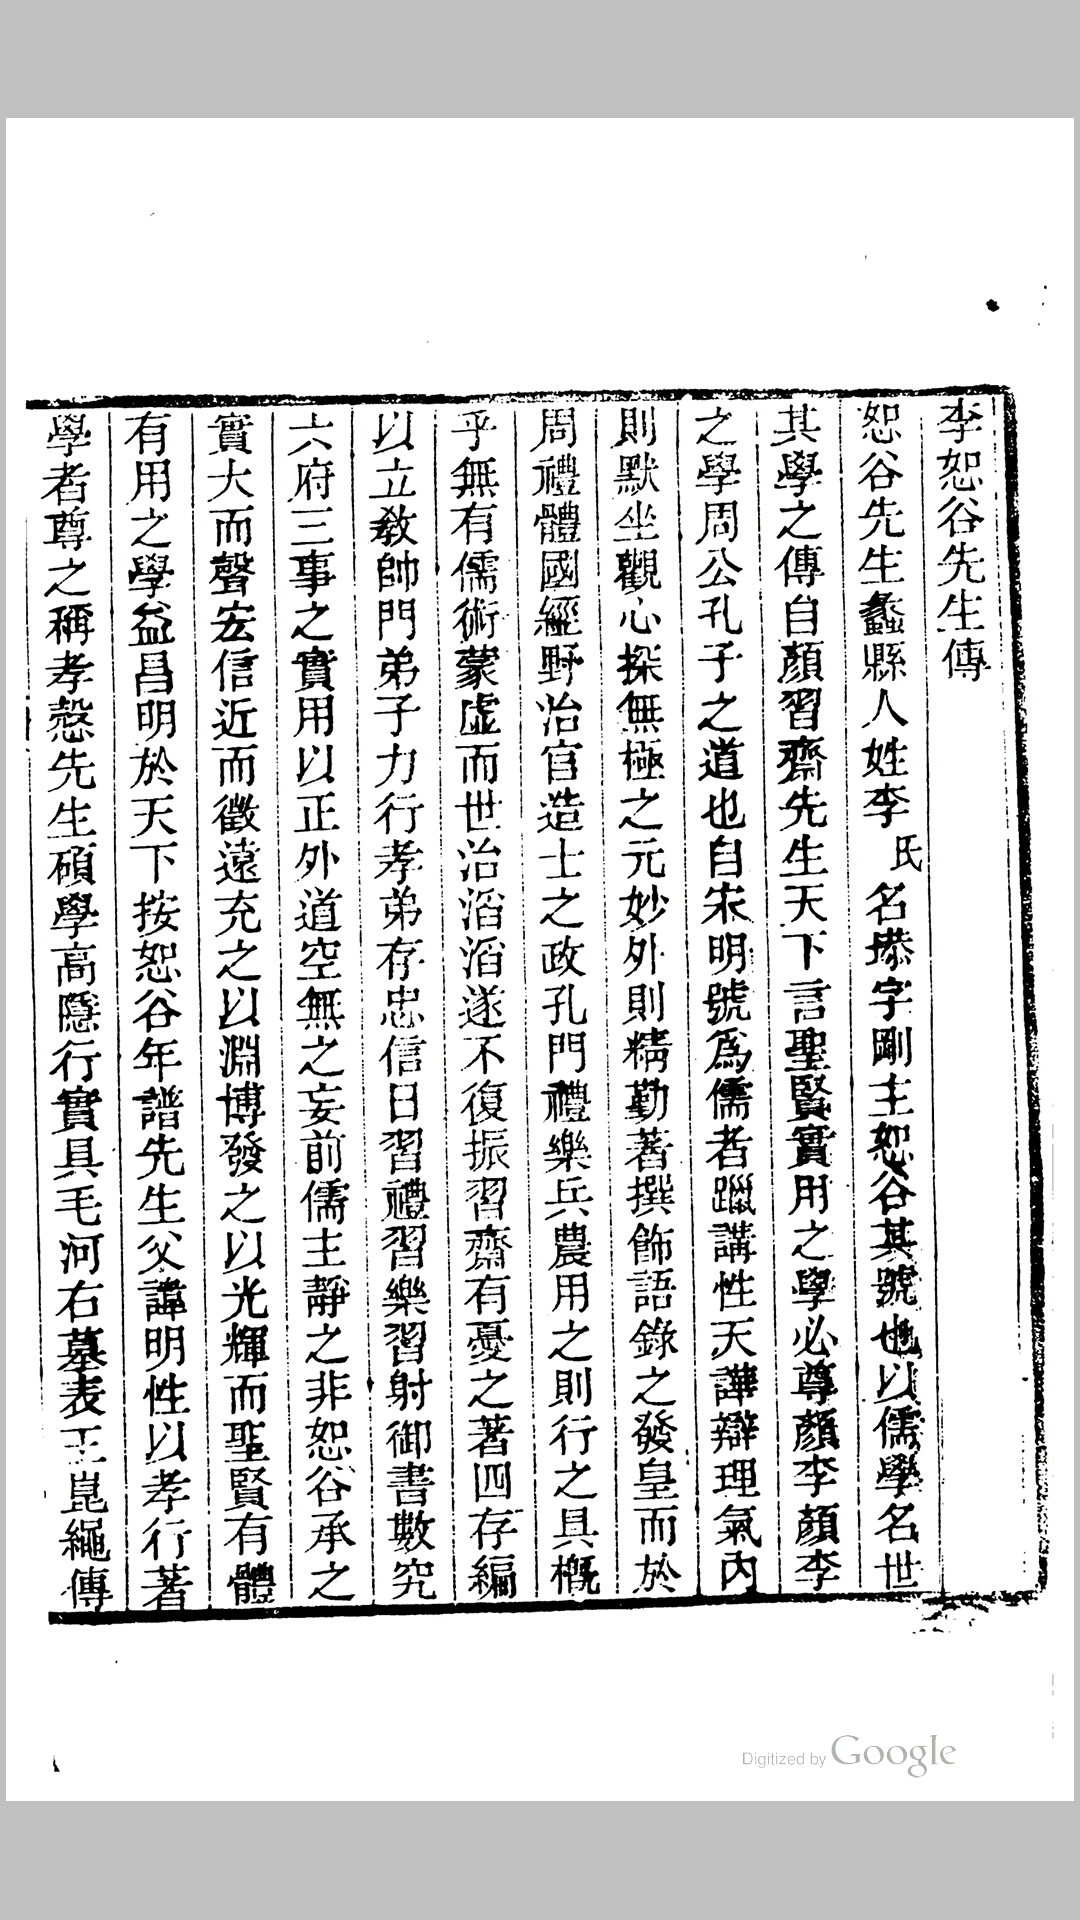 李恕谷先生傳
恕谷先生蠡縣人姓李氏名塨字剛主恕谷其號也以儒學名世
其學之傳自顏習齋先生天下言聖賢實用之學必尊顏李顏李
之學周公孔子之道也自宋明號爲儒者躐講性天譁辯理氣內
則默坐觀心探無極之元妙外則精勤著撰飾語錄之發皇而於
周禮體國經野治官造士之政孔門禮樂兵農用之則行之具概
乎無有儒術蒙虛而世治滔滔遂不復振習齋有憂之著四存編
以立教帥門弟子力行孝弟存忠信日習禮習樂習射御書數究
六府三事之實用以正外道空無之妄前儒主靜之非恕谷承之
實大而聲宏信近而徵遠充之以淵博發之以光輝而聖賢有體
有用之學益昌明於天下按恕谷年譜先生父諱明性以孝行著
學者尊之稱孝愨先生碩學高隱行實具毛河右墓表王崑繩傳
Digitized by Google